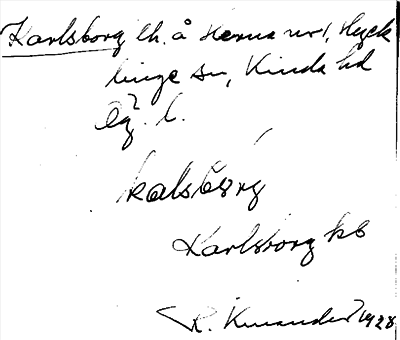 Karlsborg lh. å Herna nr 1, Hyck
linge sn, Kinda hd
Ög. l.
kalsbörg
Karlsborg kb
R. Kinander 1928